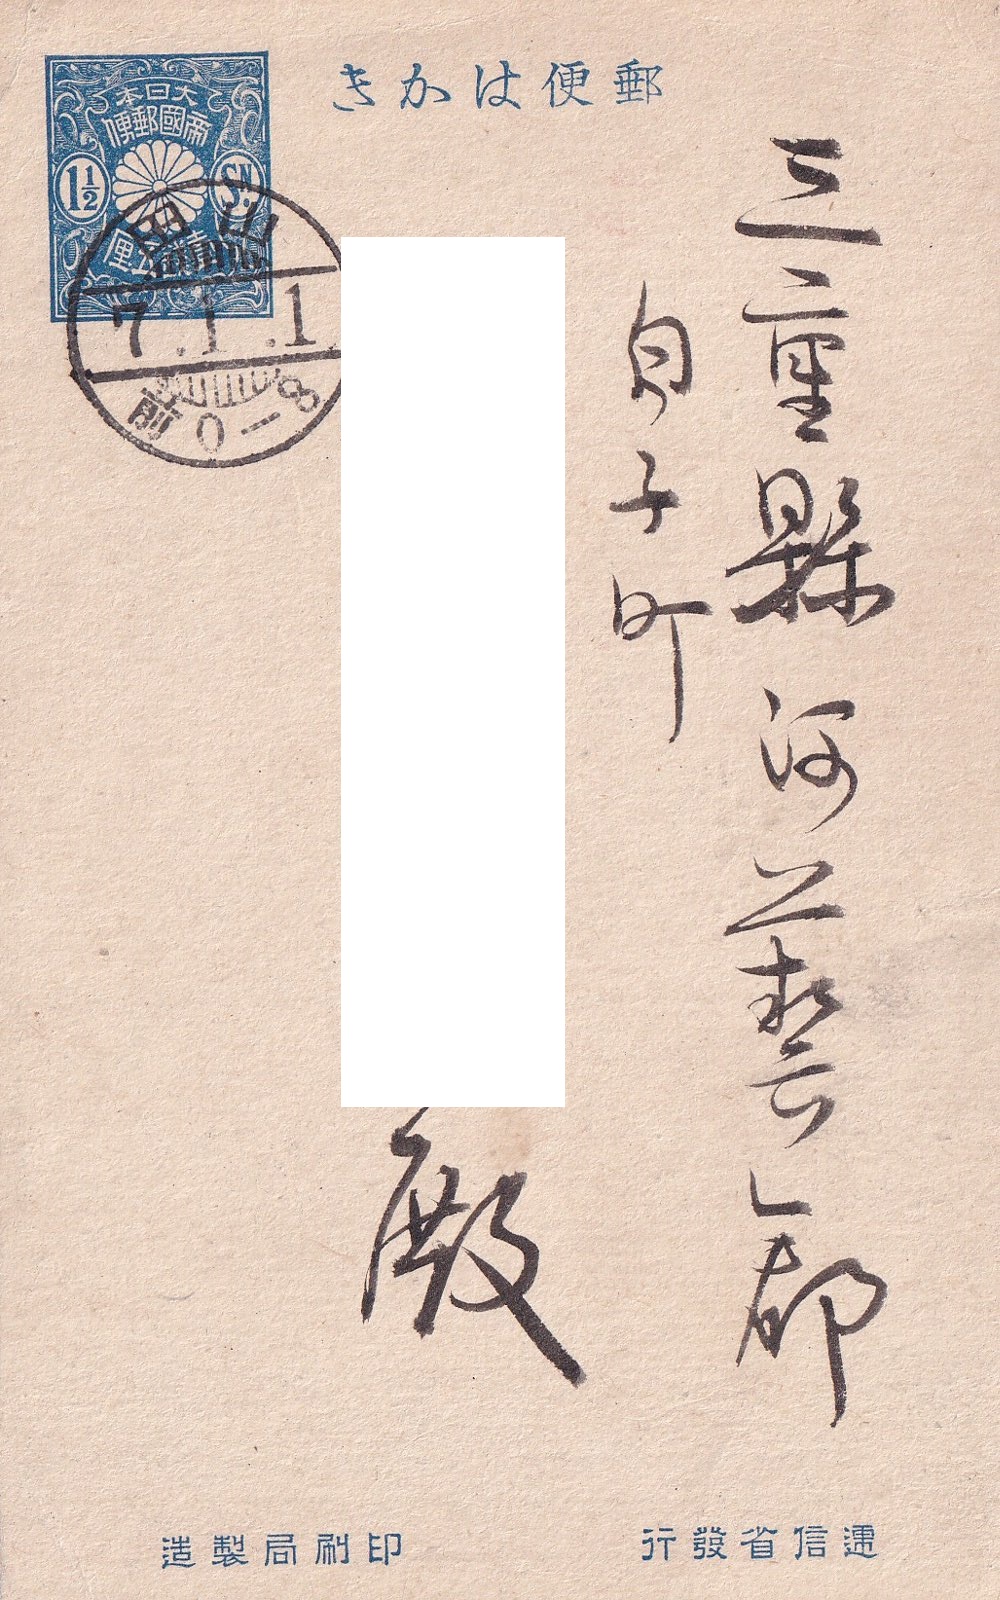 郵便はかき
大日本
帝國郵便
1½
SN.
壹錢五厘
山田
7.1.1
前0-8
三重縣河芸藝郡
白子町
殿
逓信省發行
印刷局製造